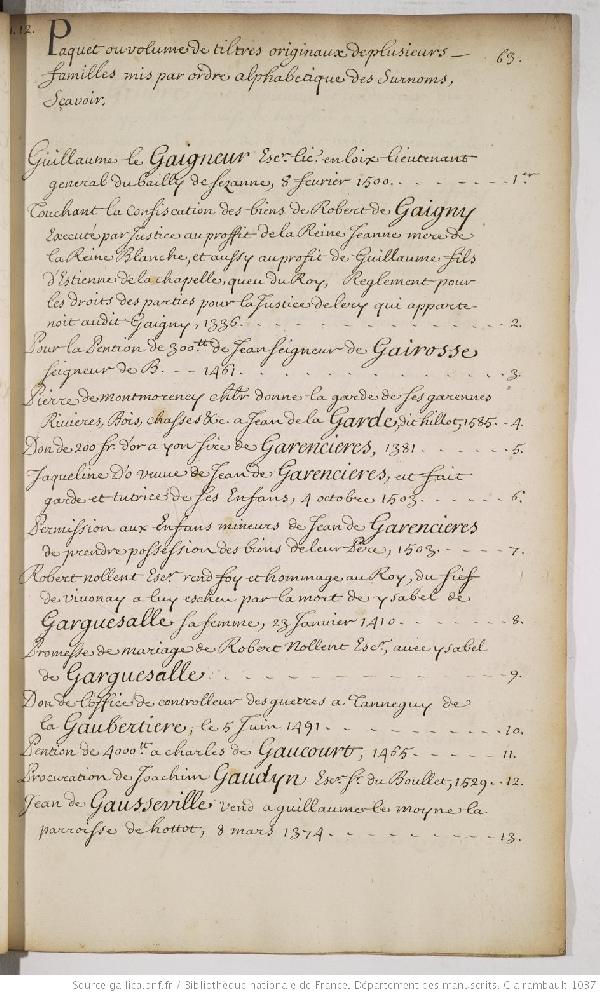 1.12.
Paquet ou volume de tiltres originaux de plusieurs _ 63.
familles mis par ordre alphabetique des Surnoms,
Sçavoir.
Guillaume le Gaigneur Escr. lic. en loix lieutenant
general du bailly de Sezanne, 8 fevrier 1500. . . - - - - - - 1er
Touchant la confiscation des biens de Robert de Gaigny
Executé par Justice au proffit de la Reine Jeanne mere de
la Reine Blanche, et aussy au profit de Guillaume fils
d'Estienne de la chapelle, queu du Roy, Reglement pour
les droits des parties pour la Justice de lery qui apparte
noit audit Gaigny, 1336. - - - - - - - - - - - - 2.
Pour la Pention de 300tt de Jean Seigneur de Gairosse
Seigneur de B. - - - 1461. - - - - - - - - - - - 3.
Pierre de montmorency chlr donne la garde de ses garennes
Rivieres, Bois, chasses &c. a Jean de la Garde, dit hillot, 1585. - 4.
Don de 200 fr. d'or a yon sire de Garencieres, 1381. - - - - - 5.
Jaqueline d'o veuve de Jean de Garencieres, est fait
garde et tutrice de ses Enfans, 4 octobre 1503. - - - - - - 6.
Permission aux Enfans mineurs de Jean de Garencieres
de prendre possession des biens de leur Pere, 1503. - - - - - 7.
Robert nollent Escr. rend foy et hommage au Roy, du fief
de vivonay a luy escheu par la mort de ysabel de
Garguesalle sa femme, 23 Janvier 1410. - - - - - - - 8.
Promesse de mariage de Robert Nollent Escr., avec ysabel
de Garguesalle - - - - - - - - - - - - - 9.
Don de l'office de controlleur des guerres a Tanneguy de
la Gaubertiere, le 5 Juin 1491. - - - - - - - - - 10.
Pention de 4000tt a charles de Gaucourt, 1465. - - - - - 11.
Procuration de Joachim Gaudyn Escr. Sr. du Boullet, 1529. . 12.
Jean de Gausseville vend a guillaume le moyne la
parroisse de hottot, 8 mars 1374. - - - - - - - - - - 13.
Source gallica.bnf.fr / Bibliothèque nationale de France. Département des manuscrits. Clairambault 1037